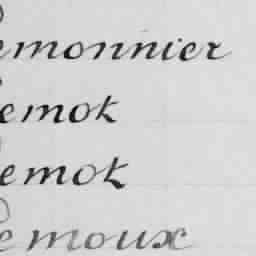 emonnier
emok
emok
emoux